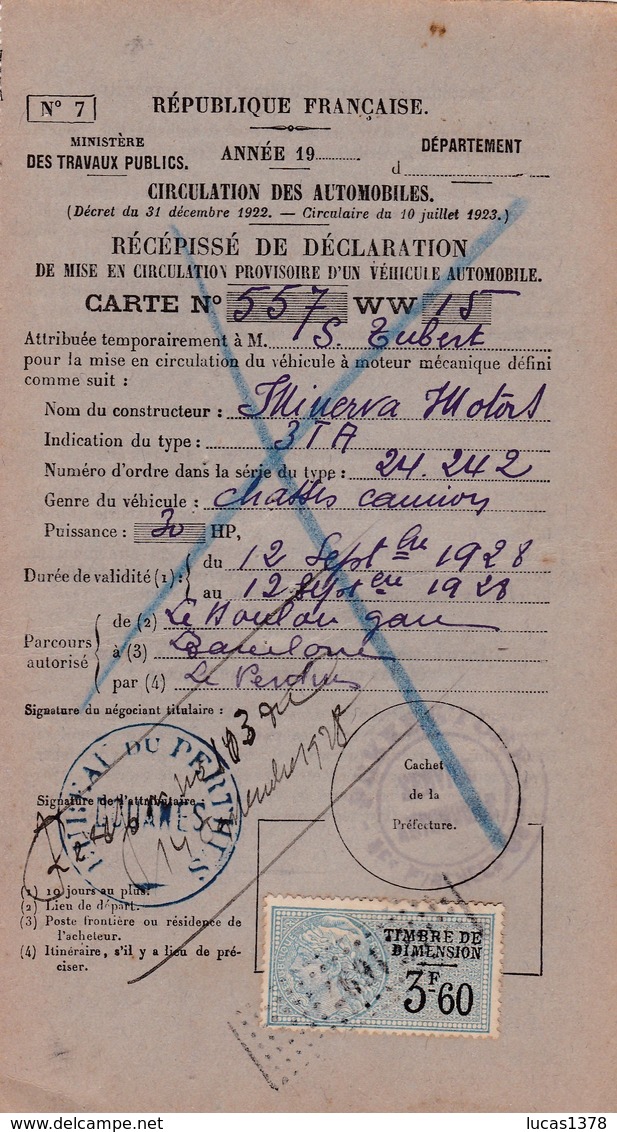 N° 7
RÉPUBLIQUE FRANÇAISE.
MINISTÈRE
DES TRAVAUX PUBLICS.
ANNÉE 19
DÉPARTEMENT
d
CIRCULATION DES AUTOMOBILES.
(Décret du 31 décembre 1922. — Circulaire du 10 juillet 1923.)
RÉCÉPISSÉ DE DÉCLARATION
DE MISE EN CIRCULATION PROVISOIRE D'UN VÉHICULE AUTOMOBILE.
CARTE N° 557 WW 15
Attribuée temporairement à M. S. Tubert
pour la mise en circulation du véhicule à moteur mécanique défini
comme suit :
Nom du constructeur : Minerva Motors
Indication du type : 3TA
Numéro d'ordre dans la série du type : 24.242
Genre du véhicule : chassis camion
Puissance : 30 HP,
Durée de validité (1) :
du 12 Septbre 1928
au 12 Septbre 1928
Parcours
autorisé
de (2) Le Boulou gare
à (3) Barcelone
par (4) Le Perthus
Signature du négociant titulaire :
103 du
1928
BUREAU DU PERTHUS
DOUANES
Signature de l'attributaire
Cachet
de la
Préfecture.
(1) 10 jours au plus.
(2) Lieu de départ.
(3) Poste frontière ou résidence de
l'acheteur.
(4) Itinéraire, s'il y a lieu de pré-
ciser.
TIMBRE DE
DIMENSION
3F60
lucas1378